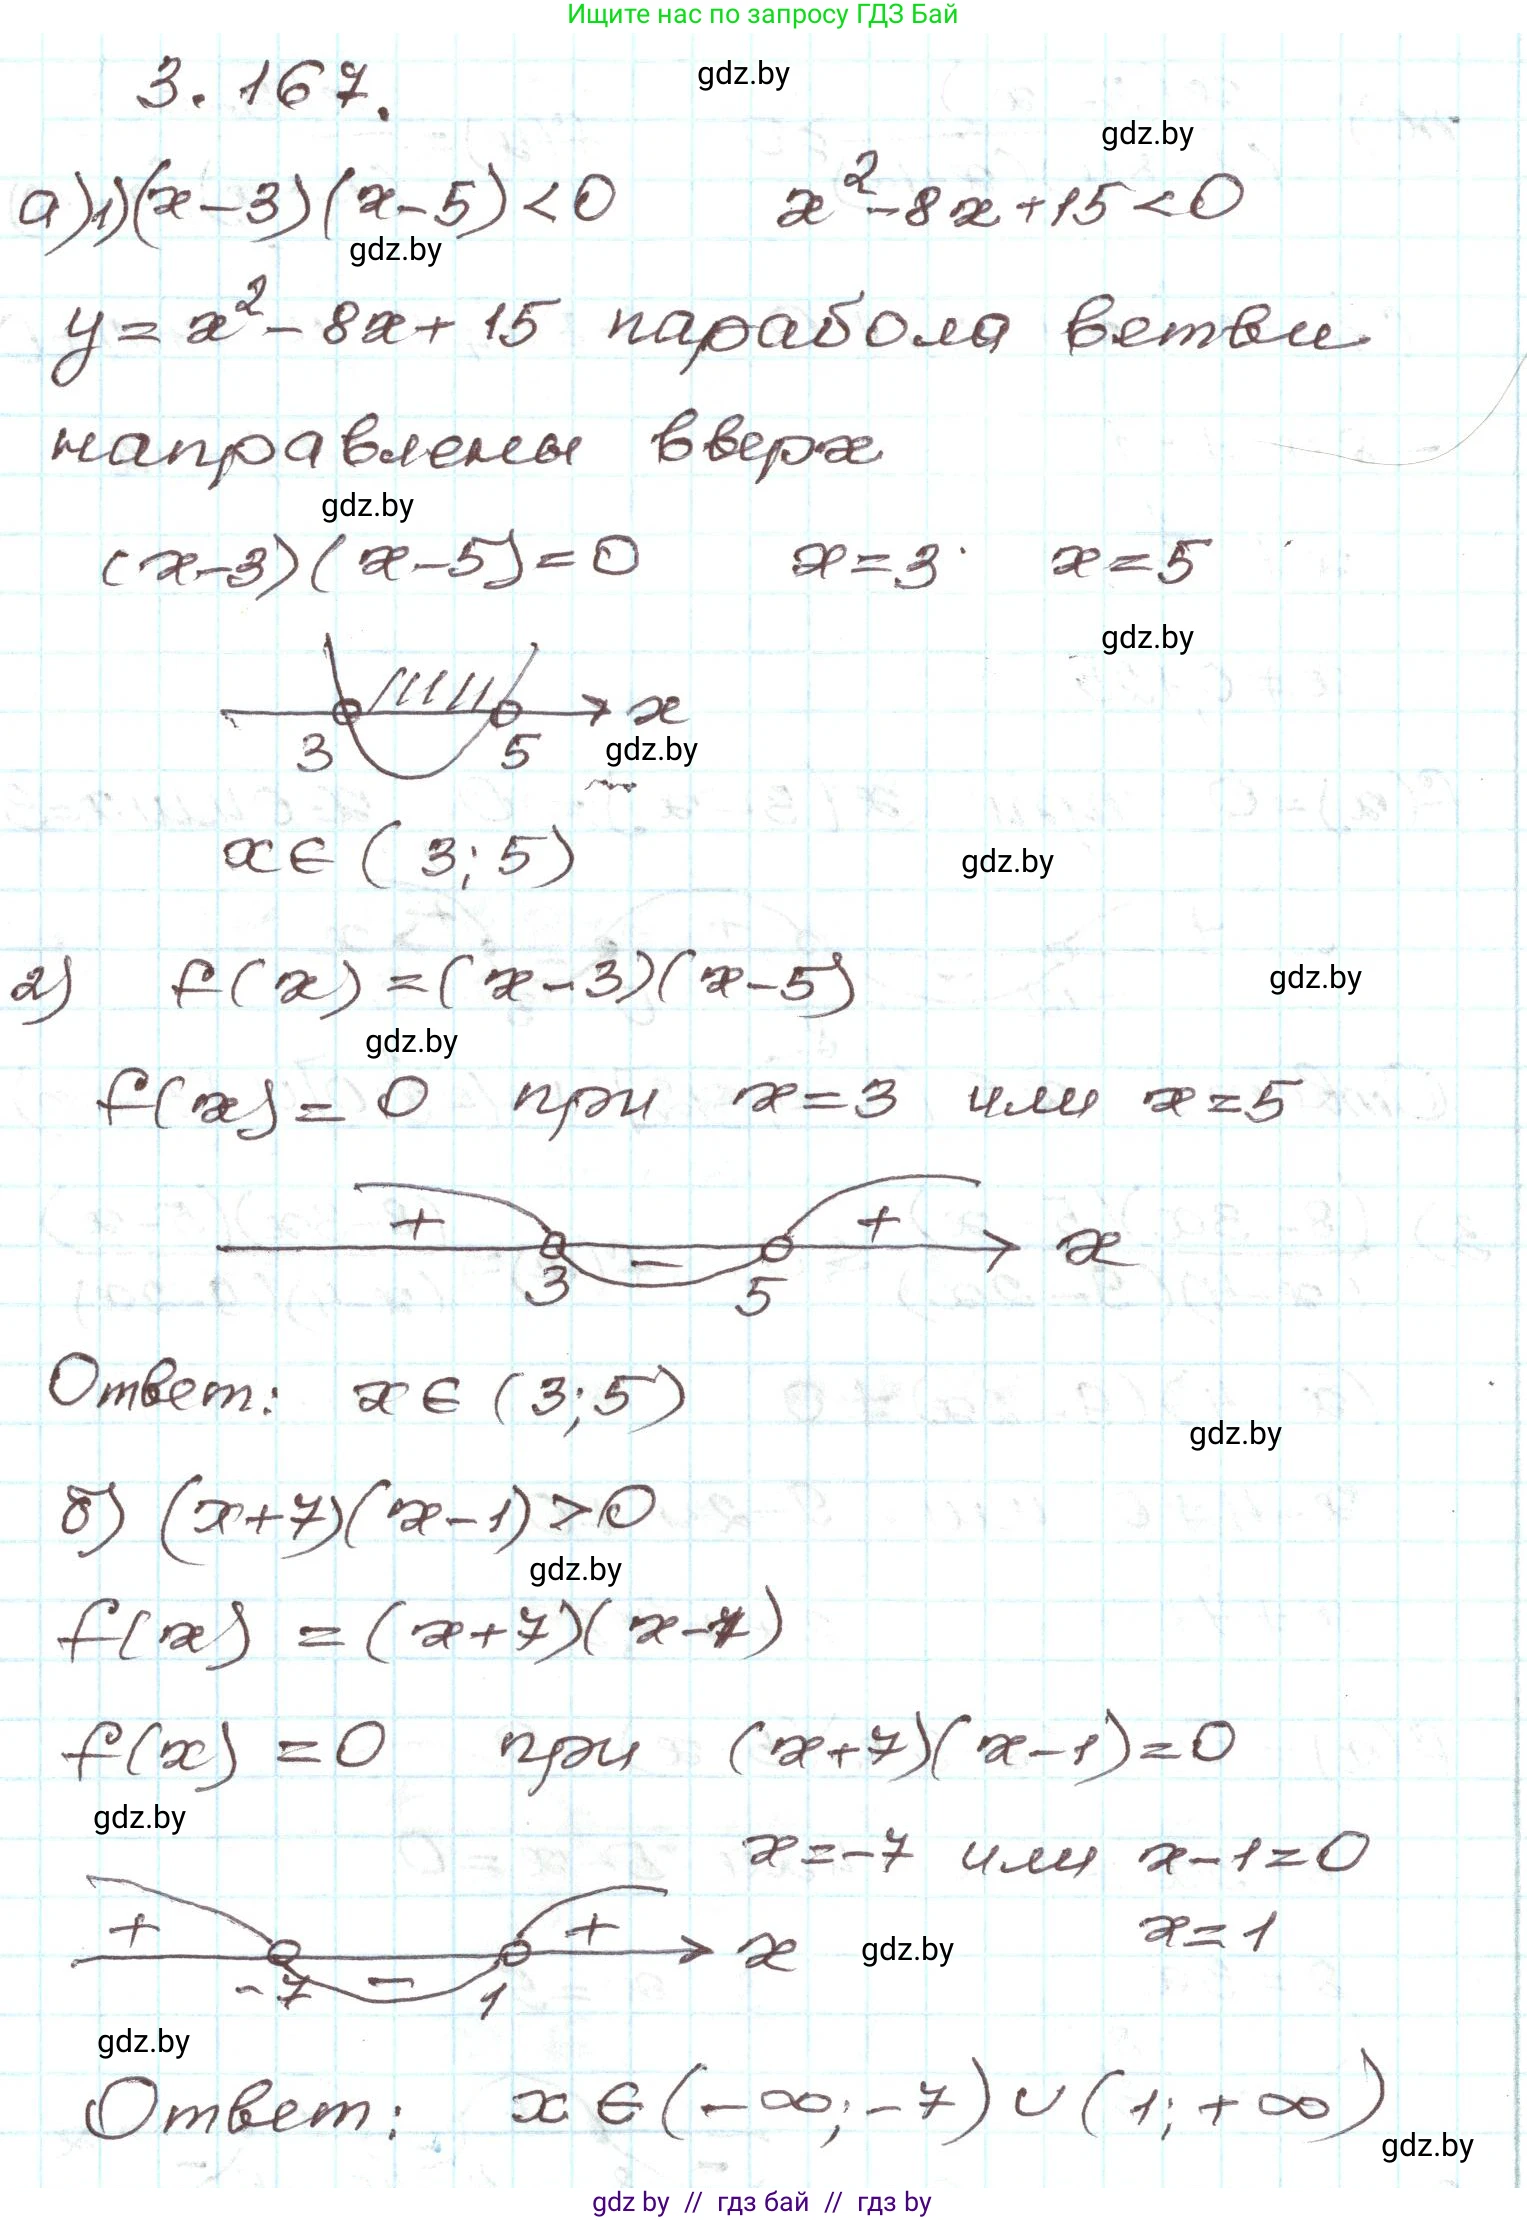 Ищите нас по запросу ГДЗ Бай
3.167.
gdz.by
gdz.by
а)1)(x-3)(x-5)<0 x²-8x+15<0
gdz.by
y=x²-8x+15 парабола ветви
направлены вверх
gdz.by
(x-3)(x-5)=0 x=3 x=5
gdz.by
x
3 5
gdz.by
x∈(3;5)
gdz.by
2) f(x)=(x-3)(x-5)
gdz.by
gdz.by
f(x)=0 при x=3 или x=5
+ - + x
3 5
Ответ: x∈(3;5)
gdz.by
б) (x+7)(x-1)>0
gdz.by
f(x)=(x+7)(x-1)
f(x)=0 при (x+7)(x-1)=0
gdz.by
x=-7 или x-1=0
x=1
+ - + x
-7 1
gdz.by
gdz.by
Ответ: x∈(-∞;-7)∪(1;+∞)
gdz.by
gdz by // гдз бай // гдз by